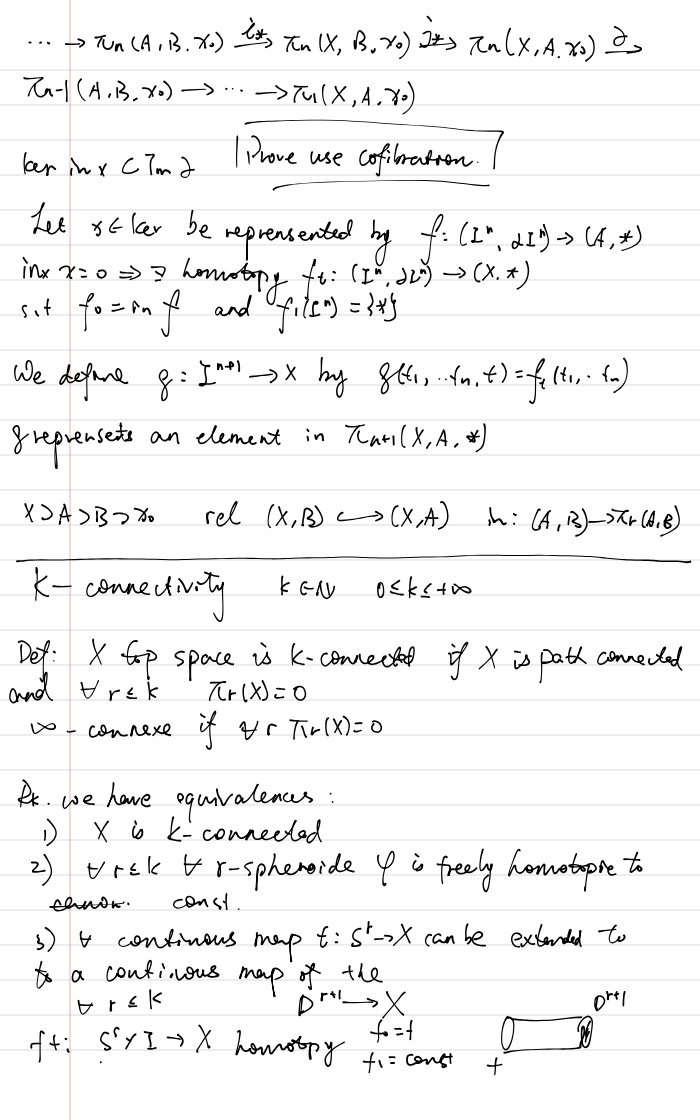 ⋯ → πn(A, B, x₀) →^{i*} πn(X, B, x₀) →^{j*} πn(X, A, x₀) →^{∂}
πn-1(A, B, x₀) → ⋯ → π1(X, A, x₀)
ker in* ⊂ Im ∂ |Prove use cofibration.|
Let x ∈ ker be reprensented by f: (Iⁿ, ∂Iⁿ) → (A, *)
in* x = 0 ⇒ ∃ homotopy ft: (Iⁿ, ∂Iⁿ) → (X, *)
s.t f₀ = in f and f₁(Iⁿ) = {*}
We define g: Iⁿ⁺¹ → X by g(t₁, ... tn, t) = ft(t₁, .. tn)
g reprensets an element in πn+1(X, A, *)
X ⊃ A ⊃ B ⊃ x₀ rel (X, B) ↪ (X, A) in: (A, B) → πr(A, B)
K - connectivity k ∈ N 0 ≤ k ≤ +∞
Def: X top space is k-connected if X is path connected
and ∀ r ≤ k πr(X) = 0
∞ - connexe if ∀ r πr(X) = 0
Rk. we have equivalences :
1) X is k-connected
2) ∀ r ≤ k ∀ r-spheroide φ is freely homotopie to
const.
3) ∀ continous map f: Sʳ → X can be extended to
to a continous map of the
∀ r ≤ k Dʳ⁺¹ → X Dʳ⁺¹
ft: Sʳ × I → X homotpy f₀ = f
f₁ = const f